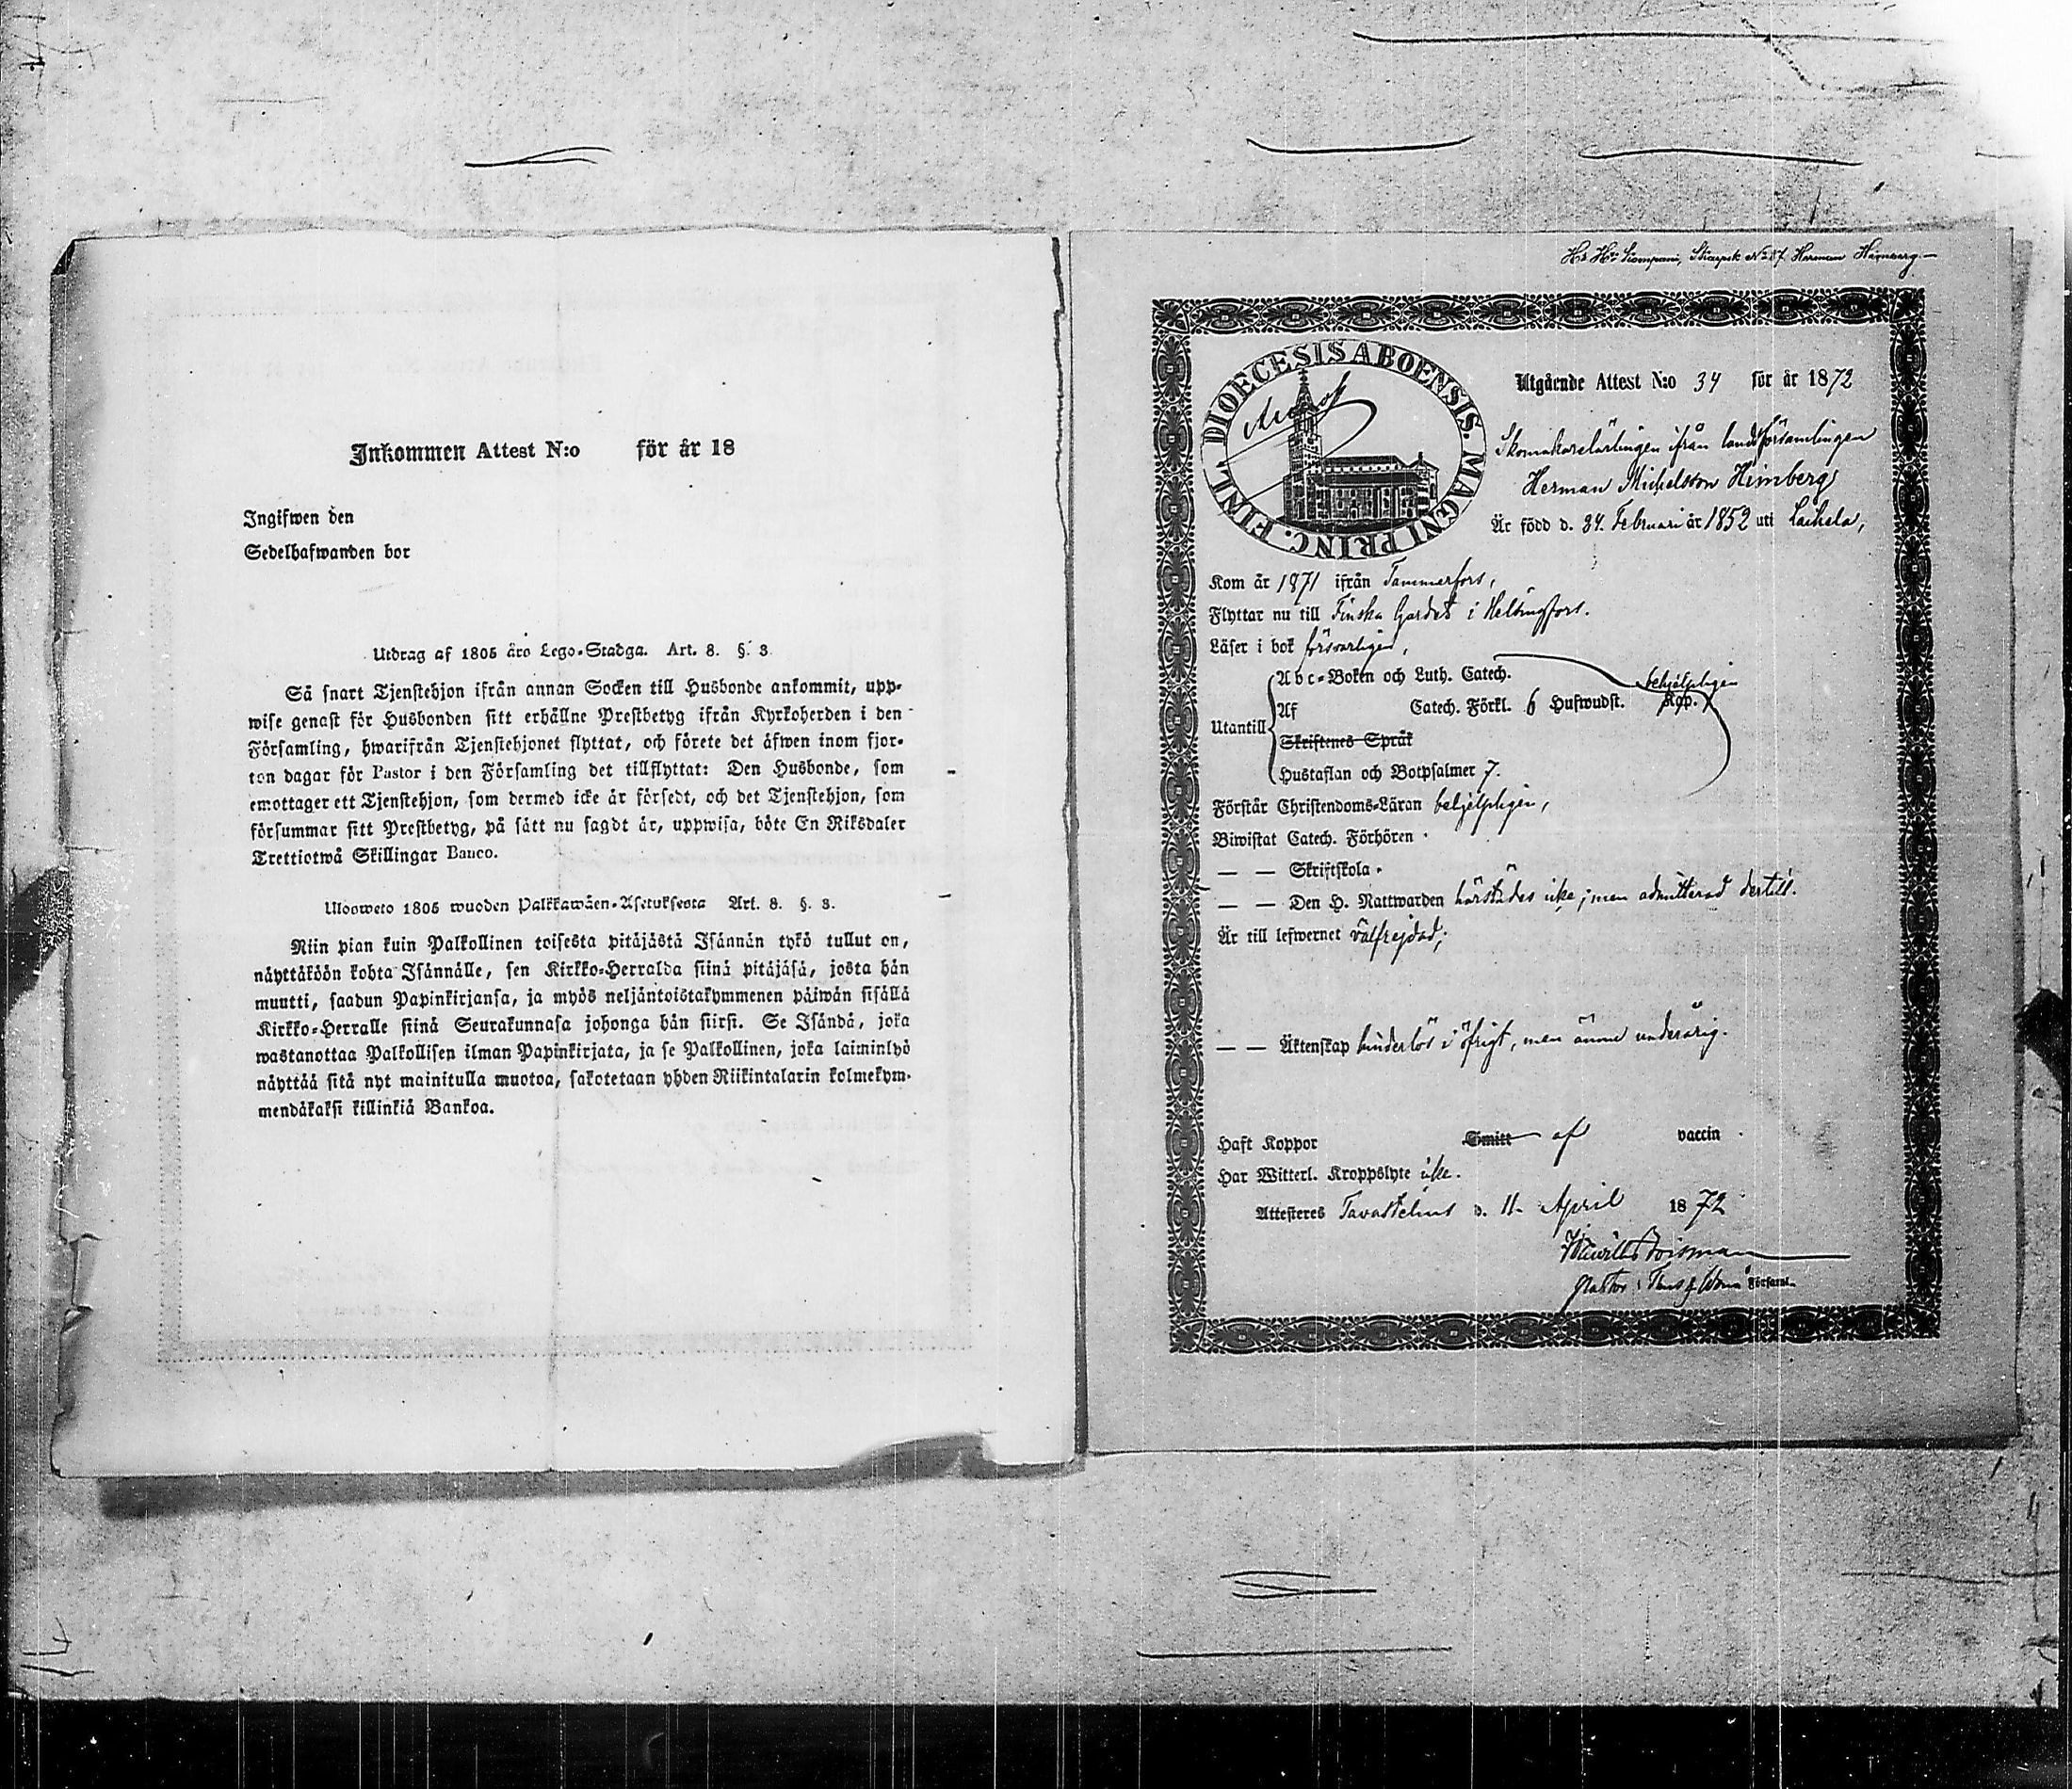 Inkommen Attest N:o för år 18
Ingifwen den
Sedelhafwanden bor
Utdrag af 1805 års Lego-Stadga. Art. 8. §. 3.
Så snart Tjenstehjon ifrån annan Socken till Husbonde ankommit, upp-
wise genast för Husbonden sitt erhållne Prestbetyg ifrån Kyrkoherden i den
Församling, hwarifrån Tjenstehjonet flyttat, och förete det äfwen inom fjor-
ton dagar för Pastor i den Församling det tillflyttat: Den Husbonde, som
emottager ett Tjenstehjon, som dermed icke är försedt, och det Tjenstehjon, som
försummar sitt Prestbetyg, på sätt nu sagdt är, uppwisa, böte En Riksdaler
Trettiotwå Skillingar Banco.
Ulosweto 1805 wuoden Palkkawäen-Asetuksesta Art. 8. §. 3.
Niin pian kuin Palkollinen toisesta pitäjästä Isännän tykö tullut on,
näyttäköön kohta Isännälle, sen Kirkko-Herralda siinä pitäjäsä, josta hän
muutti, saadun Papinkirjansa, ja myös neljäntoistakymmenen päiwän sisällä
Kirkko-Herralle siinä Seurakunnasa johonga hän siirsi. Se Isändä, joka
wastanottaa Palkollisen ilman Papinkirjata, ja se Palkollinen, joka laiminlyö
näyttää sitä nyt mainitulla muotoa, sakotetaan yhden Riikintalarin kolmekym-
mendäkaksi killinkiä Bankoa.
Kompani, No 87 Herman Himberg
DIOECESIS ABOENSIS. MAGNI PRINC. FINL.
Utgående Attest N:o 34 för år 1872
Skomakarelärlingen ifrån landsförsamlingen
Herman Michelsson Himberg
Är född d. 24. Februari år 1852 uti Laihela,
Kom år 1871 ifrån Tammerfors,
Flyttar nu till Finska Gardet i Helsingfors.
Läser i bok försvarligen,
Utantill
Abc-Boken och Luth. Catech.
behjelpligen
Af Catech. Förkl. 6 Hufwudst. Kap.
Skriftenes Språk
Hustaflan och Botpsalmer 7.
Förstår Christendoms-Läran behjelpligen,
Biwistat Catech. Förhören
— — Skriftskola
— — Den H. Nattwarden härstädes icke; men admitterad dertill.
Är till lefwernet välfrejdad;
— — Äktenskap hinderlös i öfrigt, men ännu underårig.
Haft Koppor Smitt af vaccin
Har Witterl. Kroppslyte icke.
Attesteres Tavastehus d. 11 April 1872
Boisman
Pastor i Församl.